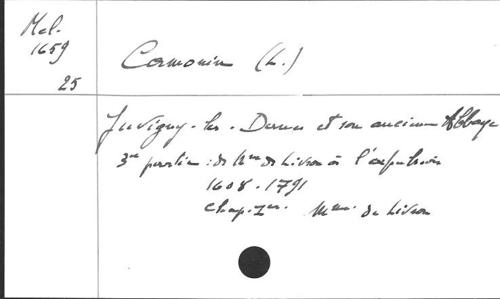 Mel.
1659
25
Cornouin (L.)
Juvigny-les-Dames et son ancienne Abbaye
3me partie : de Mme de Livron à l'expulsion
1608-1791
Chap. Ier. Mme de Livron